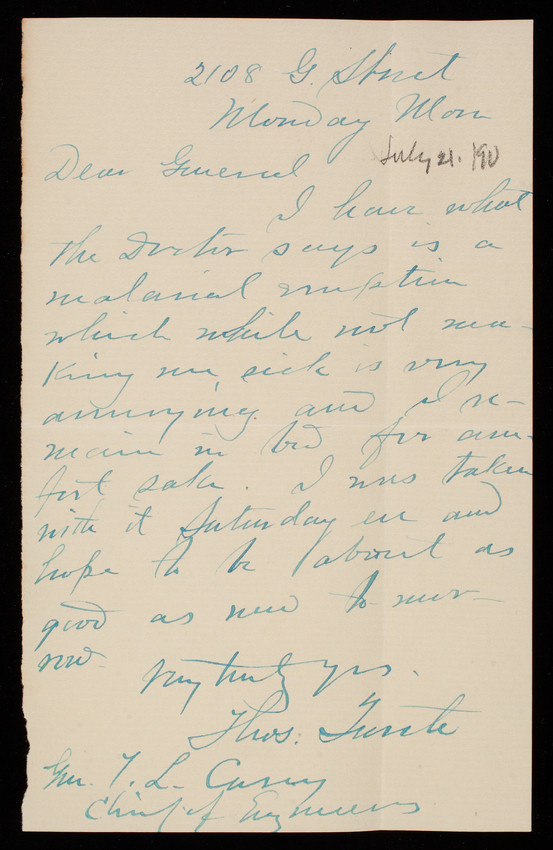 2108 G. Street
Monday Morn
July 21. '90
Dear General
I have what
the Doctor says is a
malarial eruption
which while not ma-
king me sick is very
annoying and I re-
main in bed for com-
fort sake. I was taken
with it Saturday eve and
hope to be about as
good as new to-mor-
row.
Very truly yrs.
Thos. Turtle
Gen. T. L. Casey
Chief of Engineers